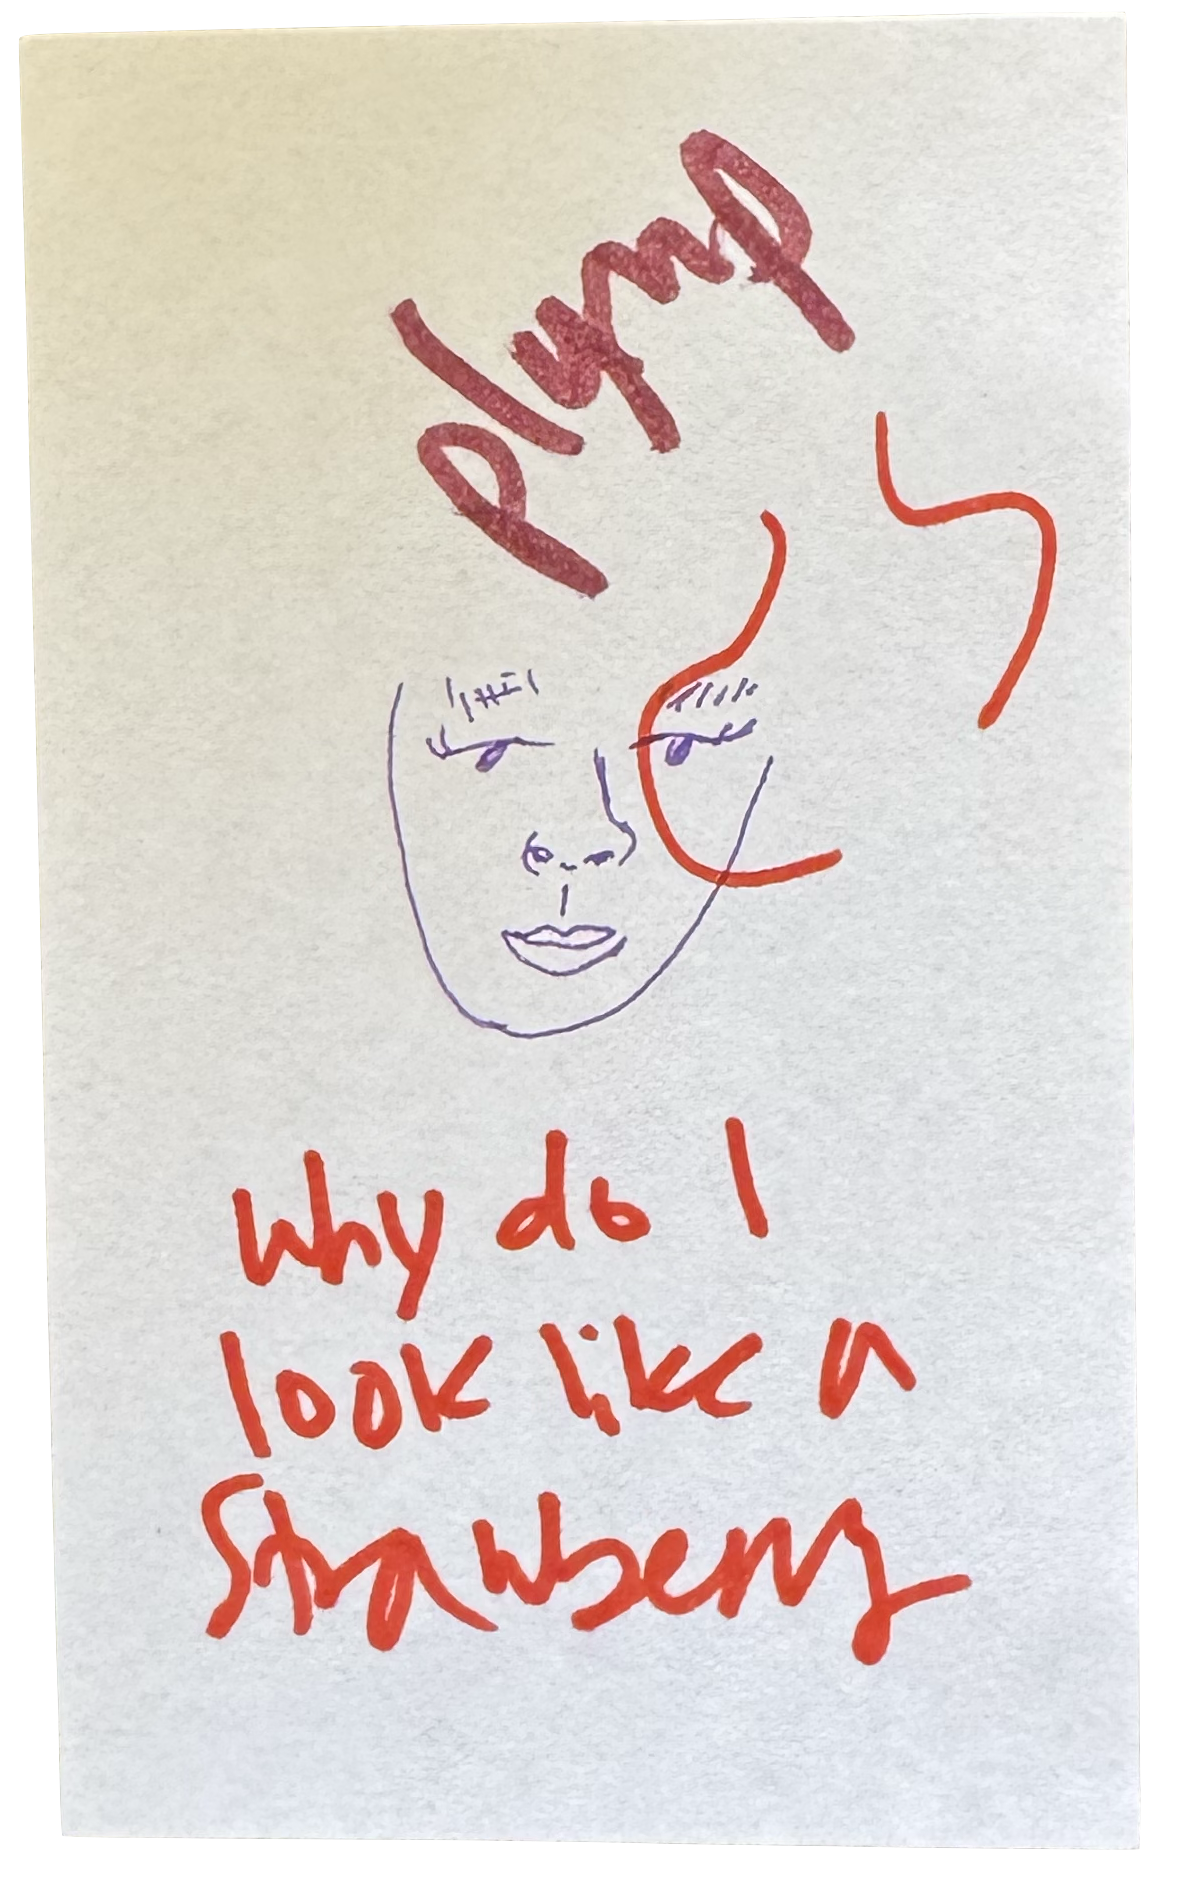 plump
Why do I
look like a
Strawberry